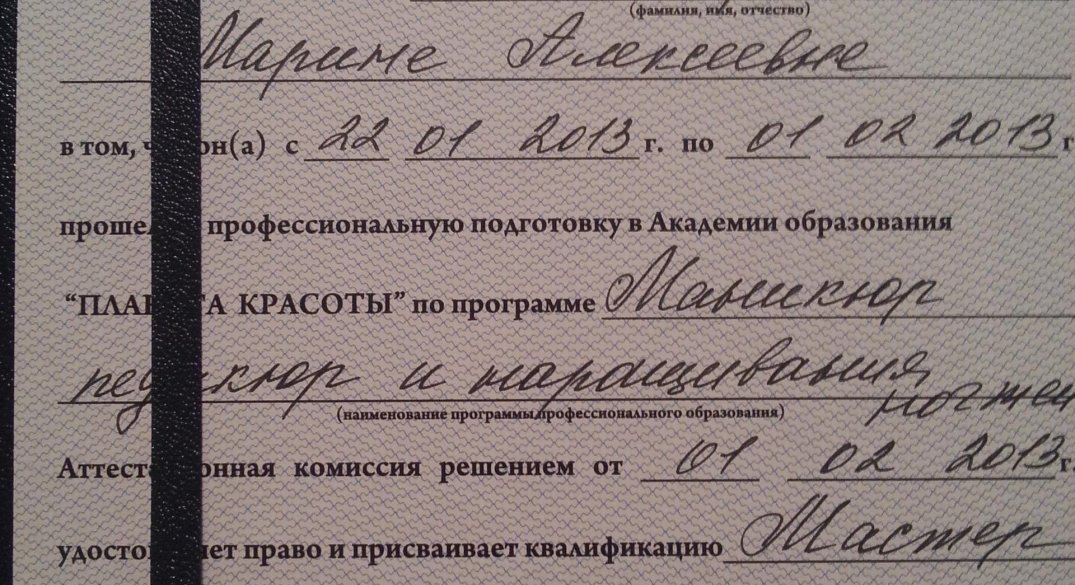 (фамилия, имя, отчество)
Марине Алексеевне
в том, он(а) с 22 01 2013 г. по 01 02 2013 г
проше профессиональную подготовку в Академии образования
“ПЛАН ТА КРАСОТЫ” по программе Маникюр
педикюр и наращивания
ногтей
(наименование программы профессионального образования)
Аттест онная комиссия решением от 01 02 2013 г.
удосто ет право и присваивает квалификацию Мастер